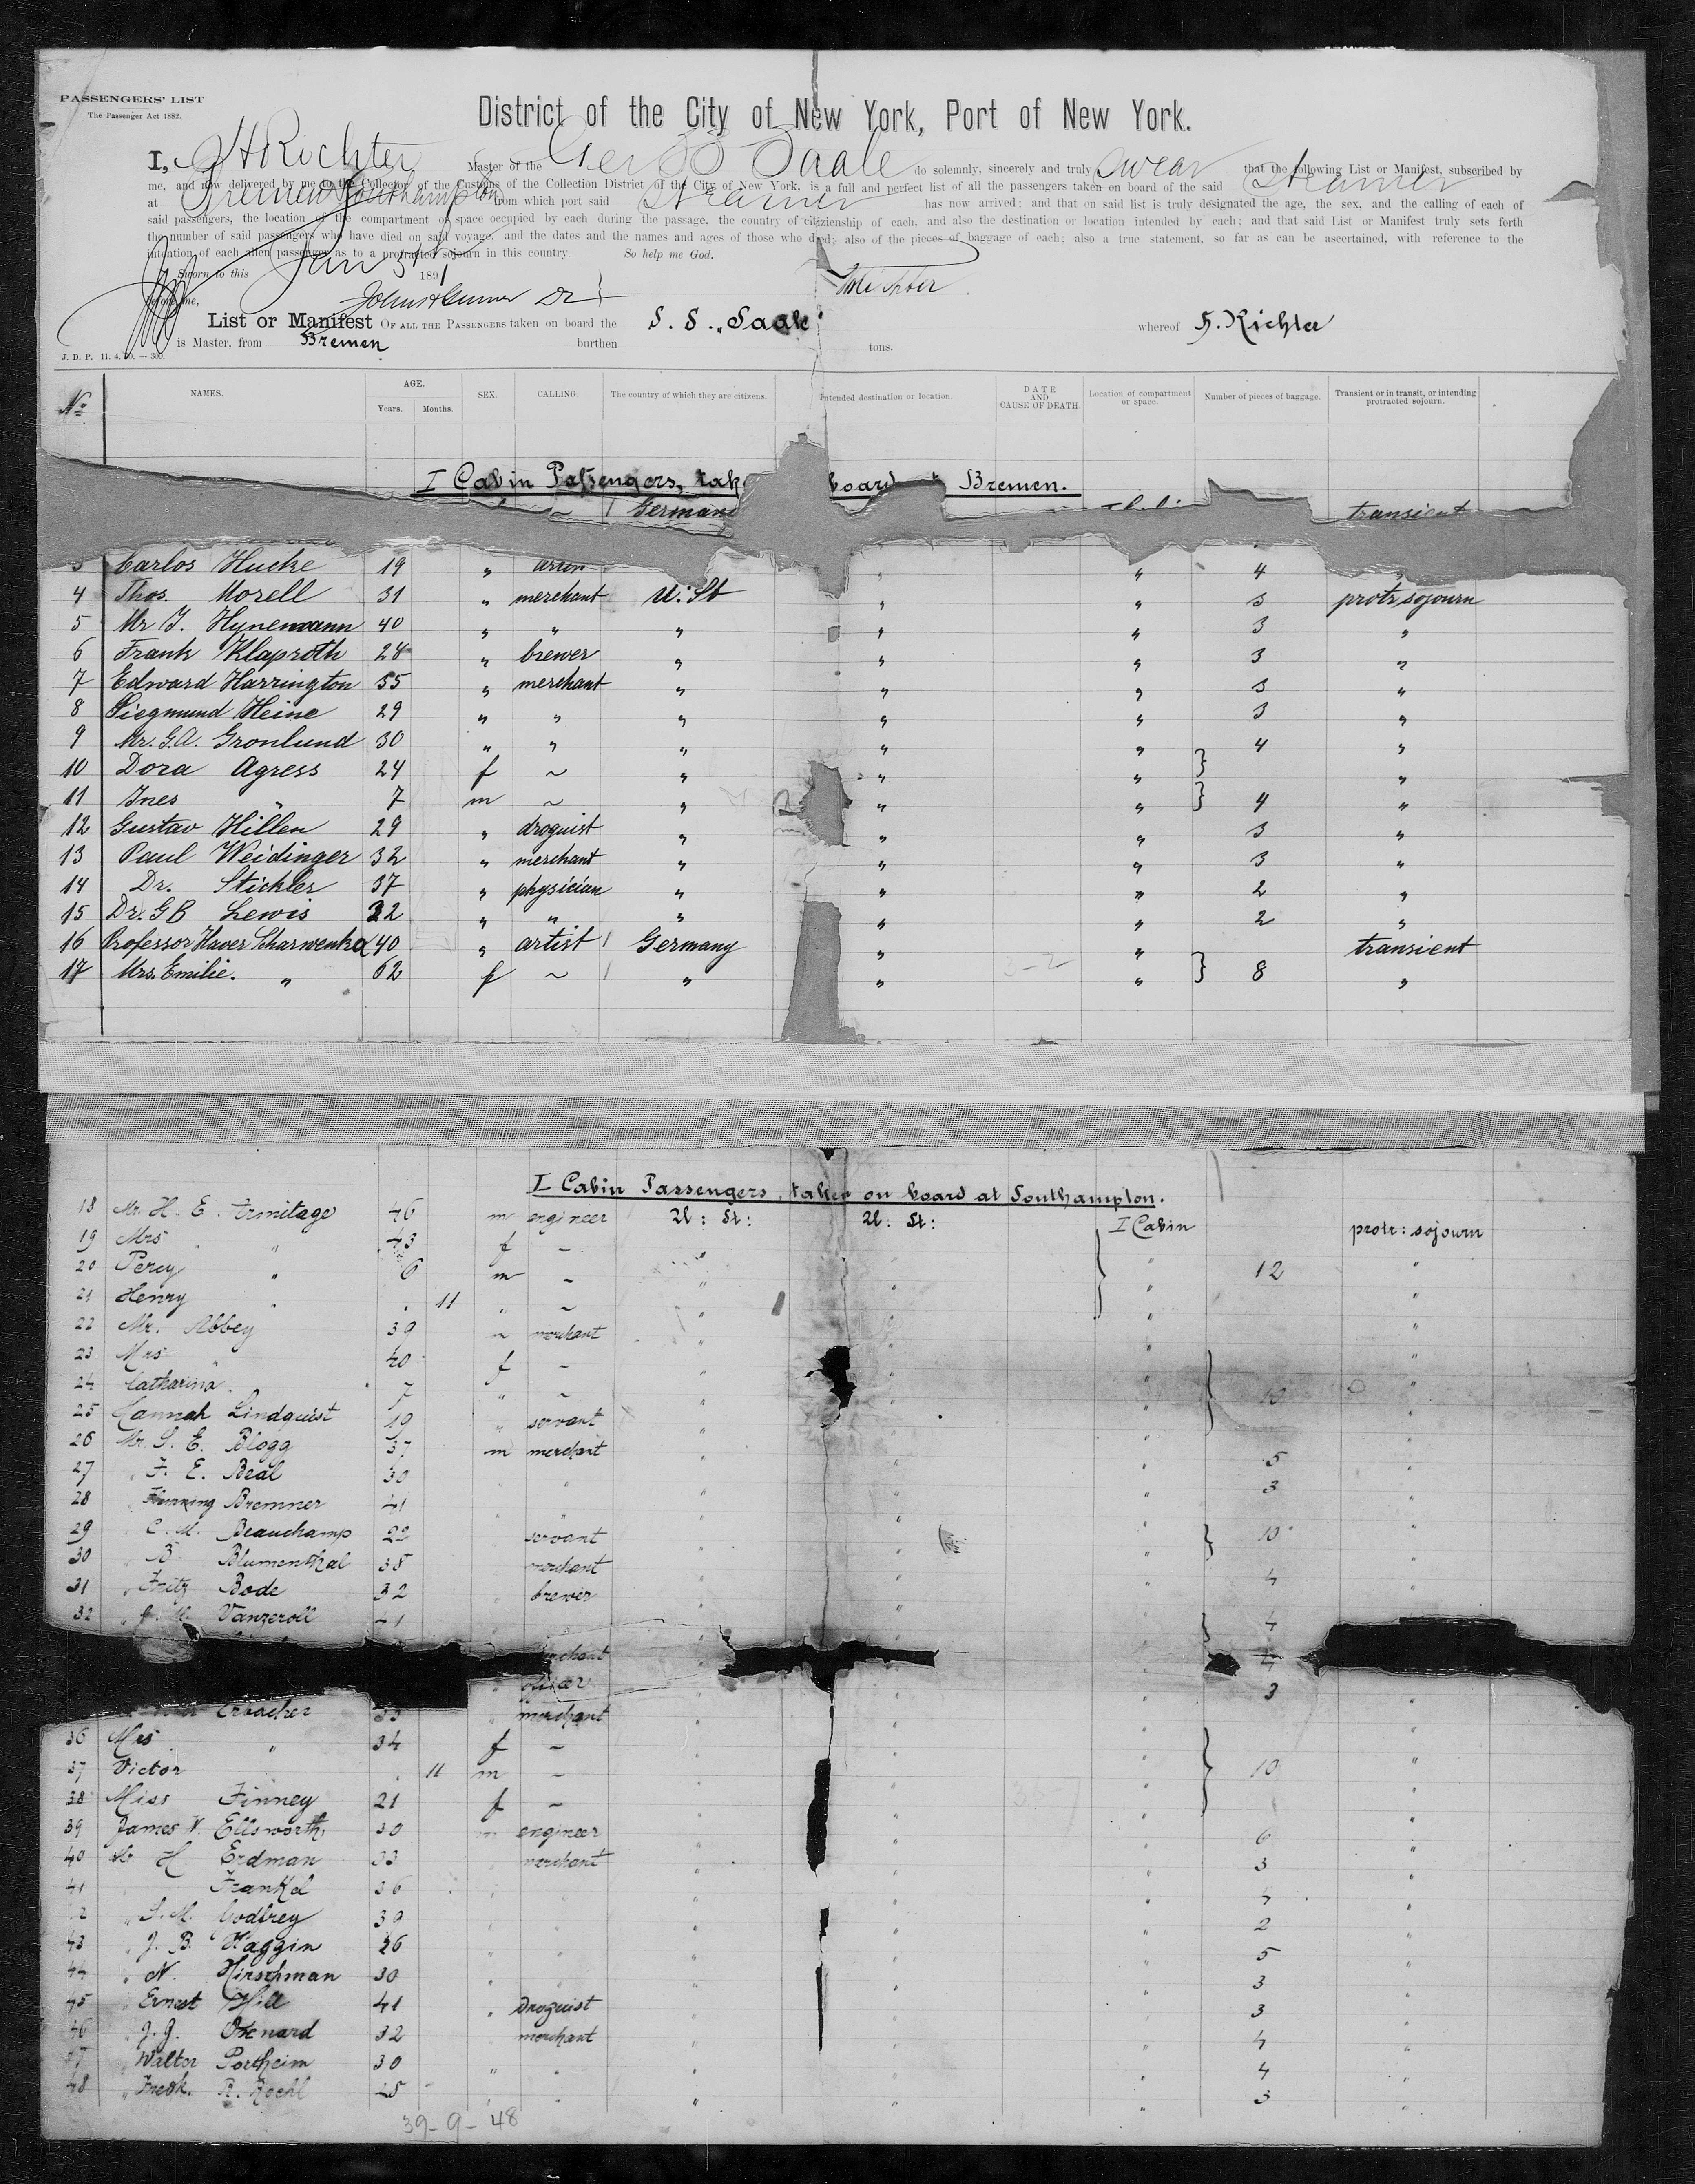 PASSENGERS' LIST
The Passenger Act 1882.
District of the City of New York, Port of New York.
I, H Richter Master of the Ger SS Saale do solemnly, sincerely and truly swear that the following List or Manifest, subscribed by
me, and now delivered by me to the Collector of the Customs of the Collection District of the City of New York, is a full and perfect list of all the passengers taken on board of the said Steamer
at Bremen Southampton from which port said Steamer has now arrived; and that on said list is truly designated the age, the sex, and the calling of each of
said passengers, the location of the compartment or space occupied by each during the passage, the country of citizenship of each, and also the destination or location intended by each; and that said List or Manifest truly sets forth
the number of said passengers who have died on said voyage, and the dates and the names and ages of those who died; also of the pieces of baggage of each; also a true statement, so far as can be ascertained, with reference to the
intention of each alien passenger as to a protracted sojourn in this country. So help me God.
Sworn to this Jan 1891
before me,
List or Manifest OF ALL THE PASSENGERS taken on board the S. S. „Saale" whereof H. Richter
is Master, from Bremen burthen tons.
J. D. P. 11. 4. — 300.
No NAMES. AGE. Years. Months. SEX. CALLING. The country of which they are citizens. Intended destination or location. DATE AND CAUSE OF DEATH. Location of compartment or space. Number of pieces of baggage. Transient or in transit, or intending protracted sojourn.
I Cabin Passengers, board Bremen.
~ transient
Carlos Hucke 19 " " " 4
4 Thos. Morell 31 " merchant U: St " " 3 protr sojourn
5 Mr J. Hynemann 40 " " " " " 3 "
6 Frank Klaproth 28 " brewer " " " 3 "
7 Edward Harrington 55 " merchant " " " 3 "
8 Siegmund Heine 29 " " " " " 3 "
9 Mr. G.A. Gronlund 30 " " " " " 4 "
10 Dora Agress 24 f ~ " " " "
11 Ines " 7 m ~ " " " 4 "
12 Gustav Hillen 29 " droguist " " " 3 "
13 Paul Weidinger 32 " merchant " " " 3 "
14 Dr. Stickler 37 " physician " " " 2 "
15 Dr. G B Lewis 32 " " " " " 2 "
16 Professor Xaver Scharwenka 40 " artist Germany " " transient
17 Mrs. Emilie. " 62 f ~ " " " 8 "
I Cabin Passengers, taken on board at Southampton.
18 Mr. H. E. Armitage 46 m engineer U: St: U: St: I Cabin protr: sojourn
19 Mrs " 43 f ~ " " 12 "
20 Percy " 6 m ~ " " "
21 Henry " 11 " ~ " " "
22 Mr. Abbey 39 ~ merchant " " "
23 Mrs " 40 f ~ " " "
24 Catharina 7 " ~ " " 10 "
25 Hannah Lindquist 19 " servant " " "
26 Mr. S. E. Blogg 37 m merchant " " 5 "
27 " F. E. Beal 30 " " " 3 "
28 Bremner 41 " " "
29 C. M. Beauchamp 22 servant " " 10 "
30 B Blumenthal 38 merchant " " 4 "
31 " Fritz Bode 32 brewer " "
32 Vanzeroll " " 4
officer " " 3 "
33 merchant " "
36 Mrs " 34 f ~ " "
37 Victor 11 m ~ " " 10 "
38 Miss Finney 21 f ~ " "
39 James W. Ellsworth 30 m engineer " " 6 "
40 Mr H Erdman 33 merchant " " 3 "
41 Frankel 36 " " "
" S. M. Godfrey 39 " " 2 "
43 " J. B. Haggin 26 " " " 5 "
44 " N. Hirschman 30 " " " 3 "
45 " Ernest Hill 41 " Droguist " " 3 "
46 " J. G. Oxnard 32 merchant " " 4 "
47 " Walter Portheim 30 " " " 4 "
48 " Fredk. R. Roehl 25 " " " 3 "
39-9-48